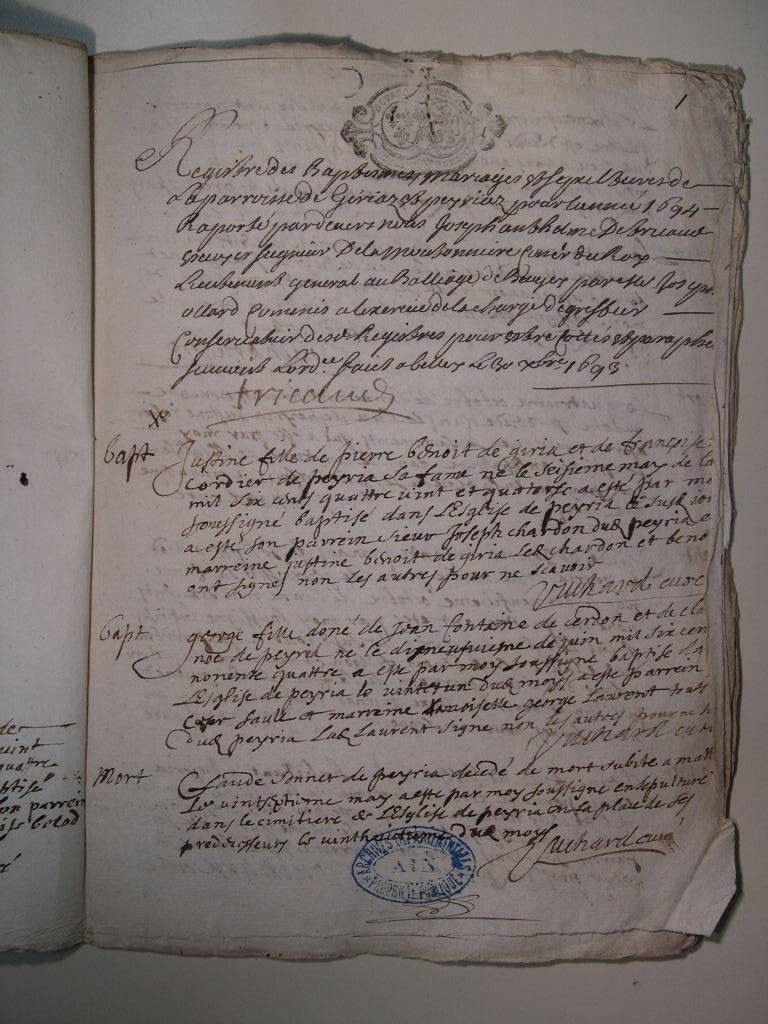 1
Registre des Baptesmes, mariages et sepultures de
La parroisse de Giriaz et peyriaz pour lannee 1694
Raporté pardevers nous Joseph anthelme Defricaud
escuyer seigneur De la moutonniere Conser du Roy
Lieutenant general au Balliage de Bugey par Me Joseph
ollard Commis a lexercice de la charge de greffier
Conservateur desd Registres pour estre cottés et paraphe
suivant Lord.ce fait a belley Le 30 xbre 1693
fricaud
Bapt
Justine fille de pierre benoit de giria et de françoise
Cordier de peyria sa fame ne le seisieme may de la
mil six cents quattre vint et quatorse a esté par mo
soussigné baptisé dans L'Esglise de peyria le susd
a esté son parrein sieur Joseph chardon dud peyria e
marreine justine benoit de giria Led chardon et beno
ont signé non les autres pour ne scavoir
Vuichard curé
bapt
george fille doné de Jean fontaine de cerdon et de cla
de peyria ne le dixneufvieme de juin mil six cen
nonente quattre a esté par moy soussigné baptisé da
L'Esglise de peyria le vintetun dud moys a esté parrein
et marreine damoiselle george Laurent
dud peyria Lad Laurent signé non les autres pour ne s
Vuichard curé
Mort
Claude Sonnet de peyria decedé de mort subite a
Le vintseptieme may a esté par moy soussigné ensepulturé
dans le cimitiere de L'Esglise de peyria en la place de ses
predecesseurs le vinthuictieme dud moys
Vuichard curé
ARCHIVES DEPARTEMENTALES
AIN
PROPRIÉTÉ PUBLIQUE
vint
quatre
ptisé
on parrein